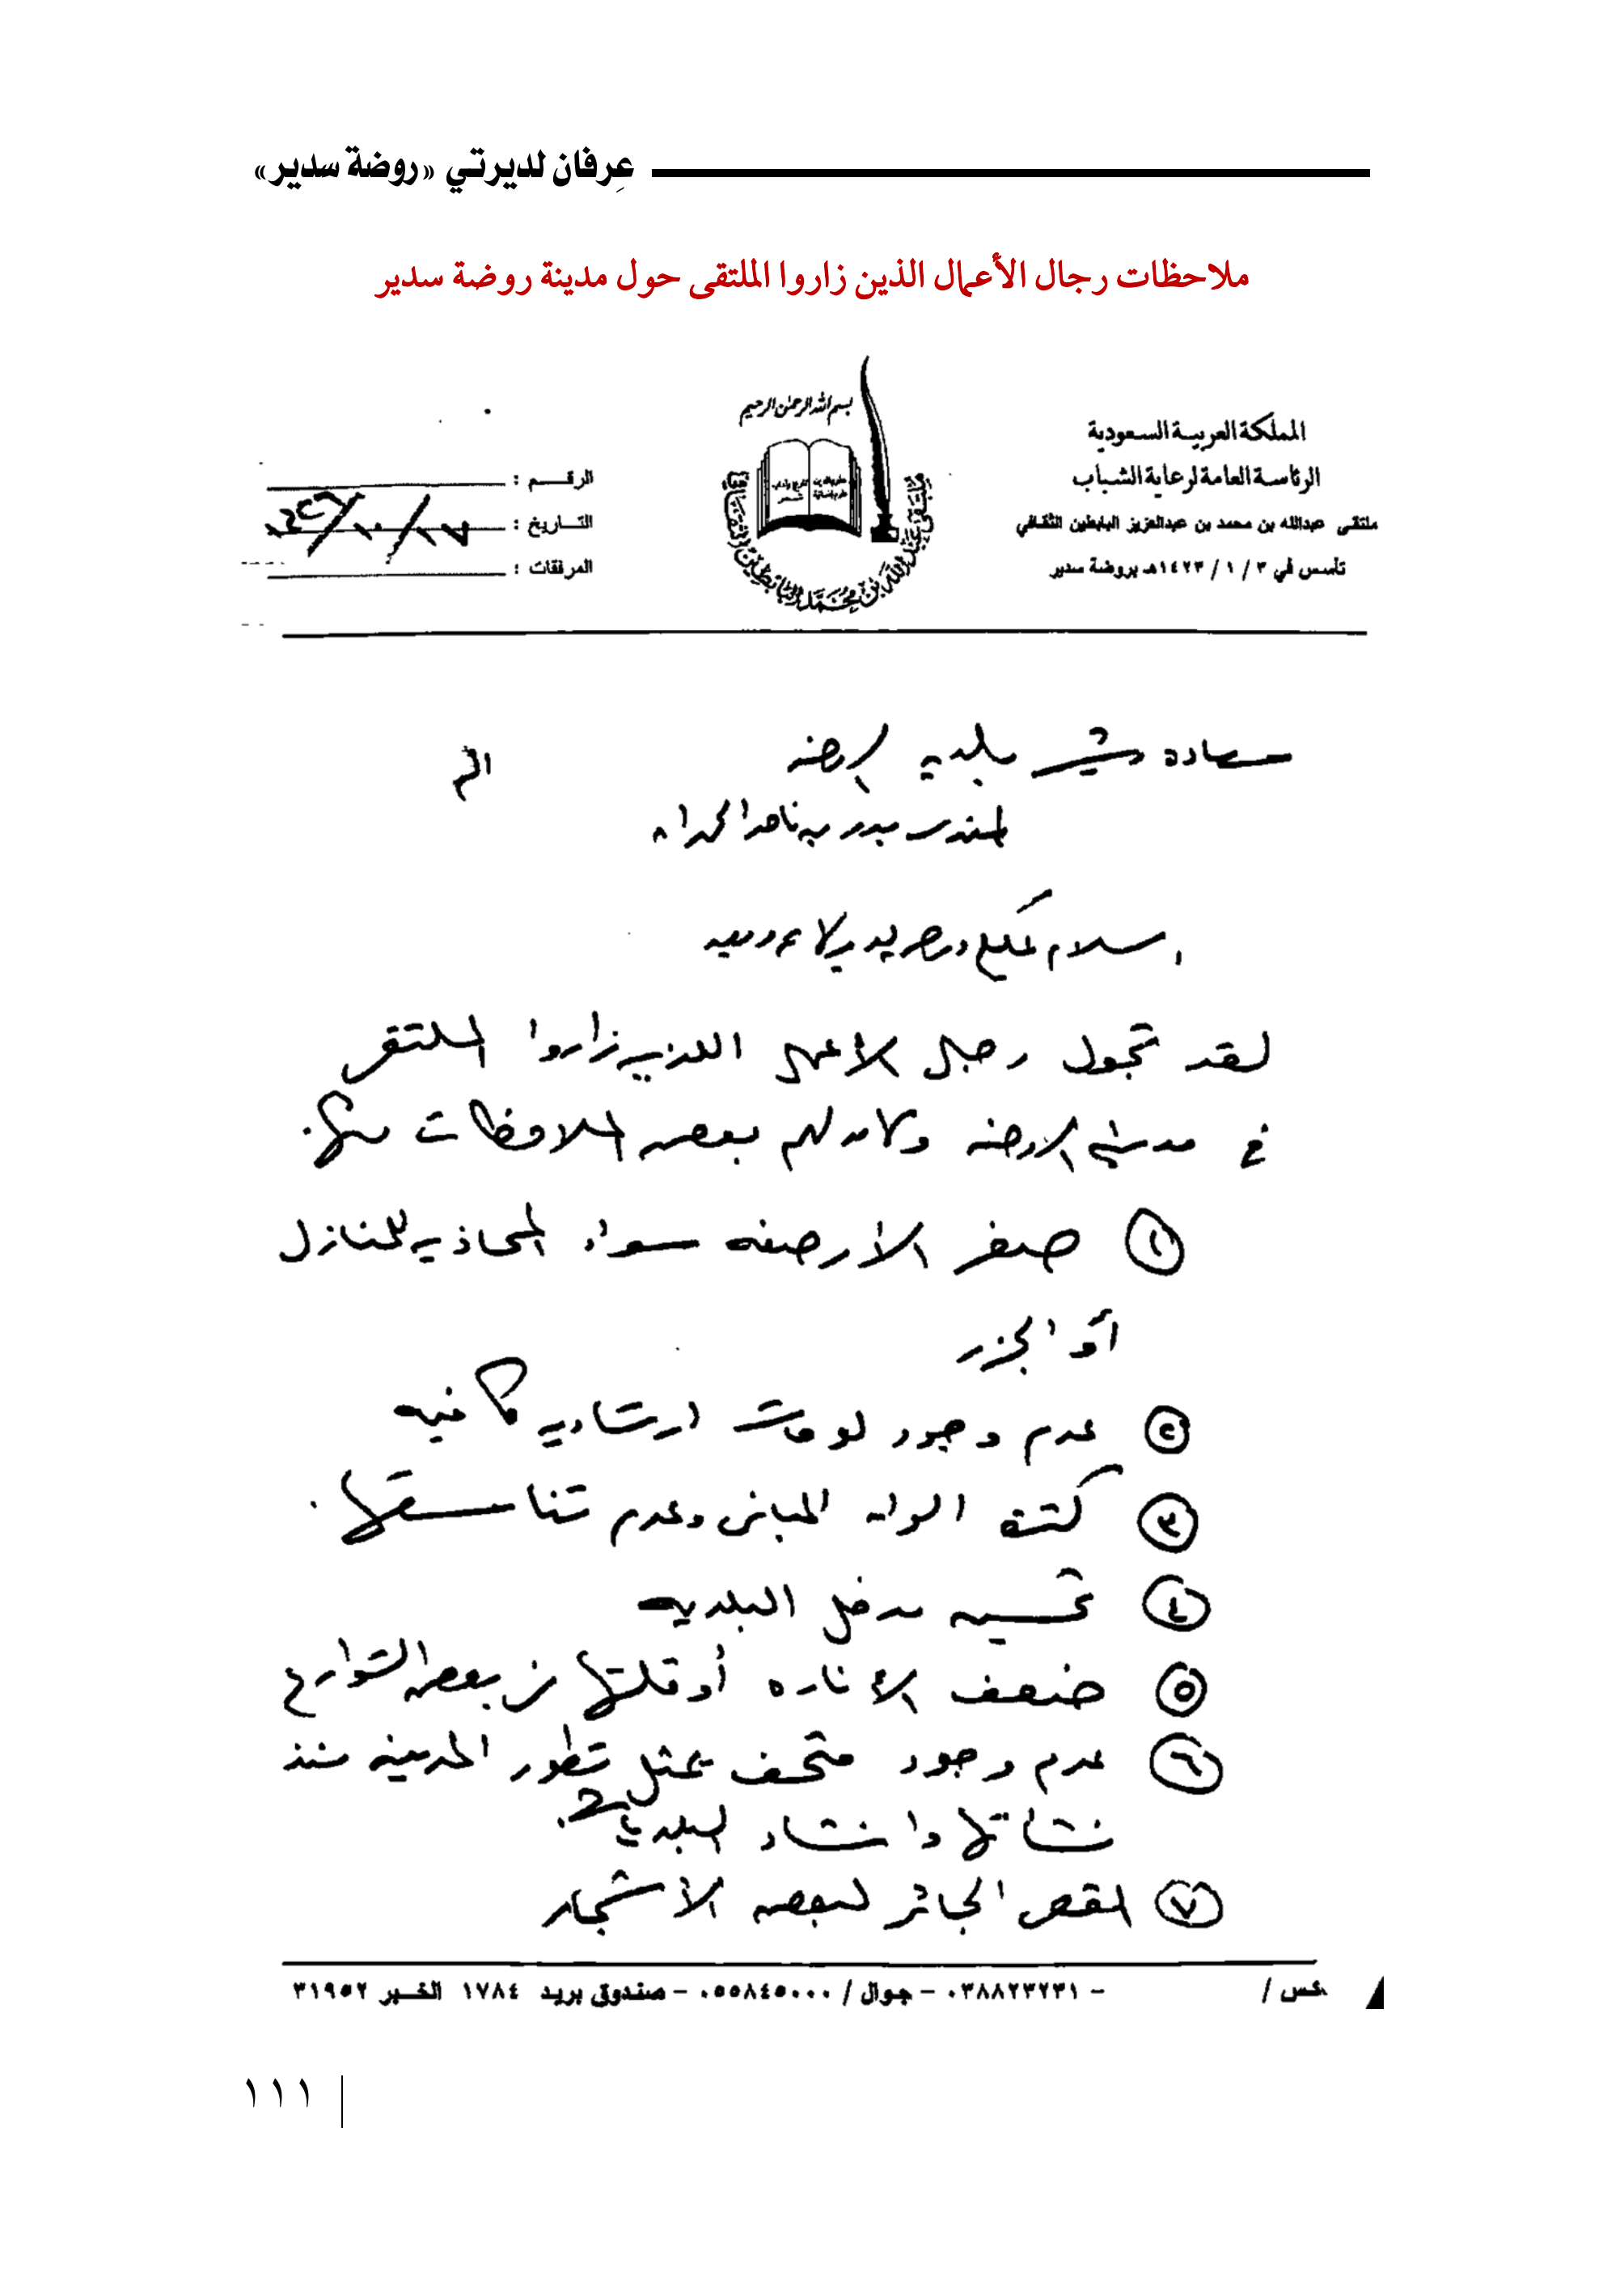 عِرفان لديرتي «روضة سدير»
ملاحظات رجال الأعمال الذين زاروا الملتقى حول مدينة روضة سدير
بسم الله الرحمن الرحيم
المملكة العربية السعودية
الرئاسة العامة لرعاية الشباب
ملتقى عبدالله بن محمد بن عبدالعزيز البابطين الثقافي
تأسس في ٣ / ١ / ١٤٢٣هـ بروضة سدير
ملتقى عبدالله بن محمد البابطين الثقافي
الرقم :
التاريخ :
المرفقات :
سعادة رئيس بلدية الروضة
المهندس بدر بن ناصر الحمدان
السلام عليكم ورحمة الله وبركاته
لقد تجول رجال الأعمال اللذين زاروا الملتقى
في مدينة الروضة وكان لهم بعض الملاحظات منها:
١ صغر الأرصفه سواء المحاذيه للمنازل
أو الجزر
٢ عدم وجود لوحات ارشاديه كافيه
٣ الوان المباني وعدم تناسقها.
٤ تحسين مدخل البلديه
٥ ضعف الأناره أو قلتها في بعض الشوارع
٦ عدم وجود متحف يمثل تطور المدينه منذ
نشأتها وانشاء البلديات.
٧ القص الجائر لبعض الأشجار
كس / - ٠٣٨٨٢٣٢٣١ - جوال / ٠٥٥٨٤٥٠٠٠ - صندوق بريد ١٧٨٤ الخبر ٣١٩٥٢
١١١